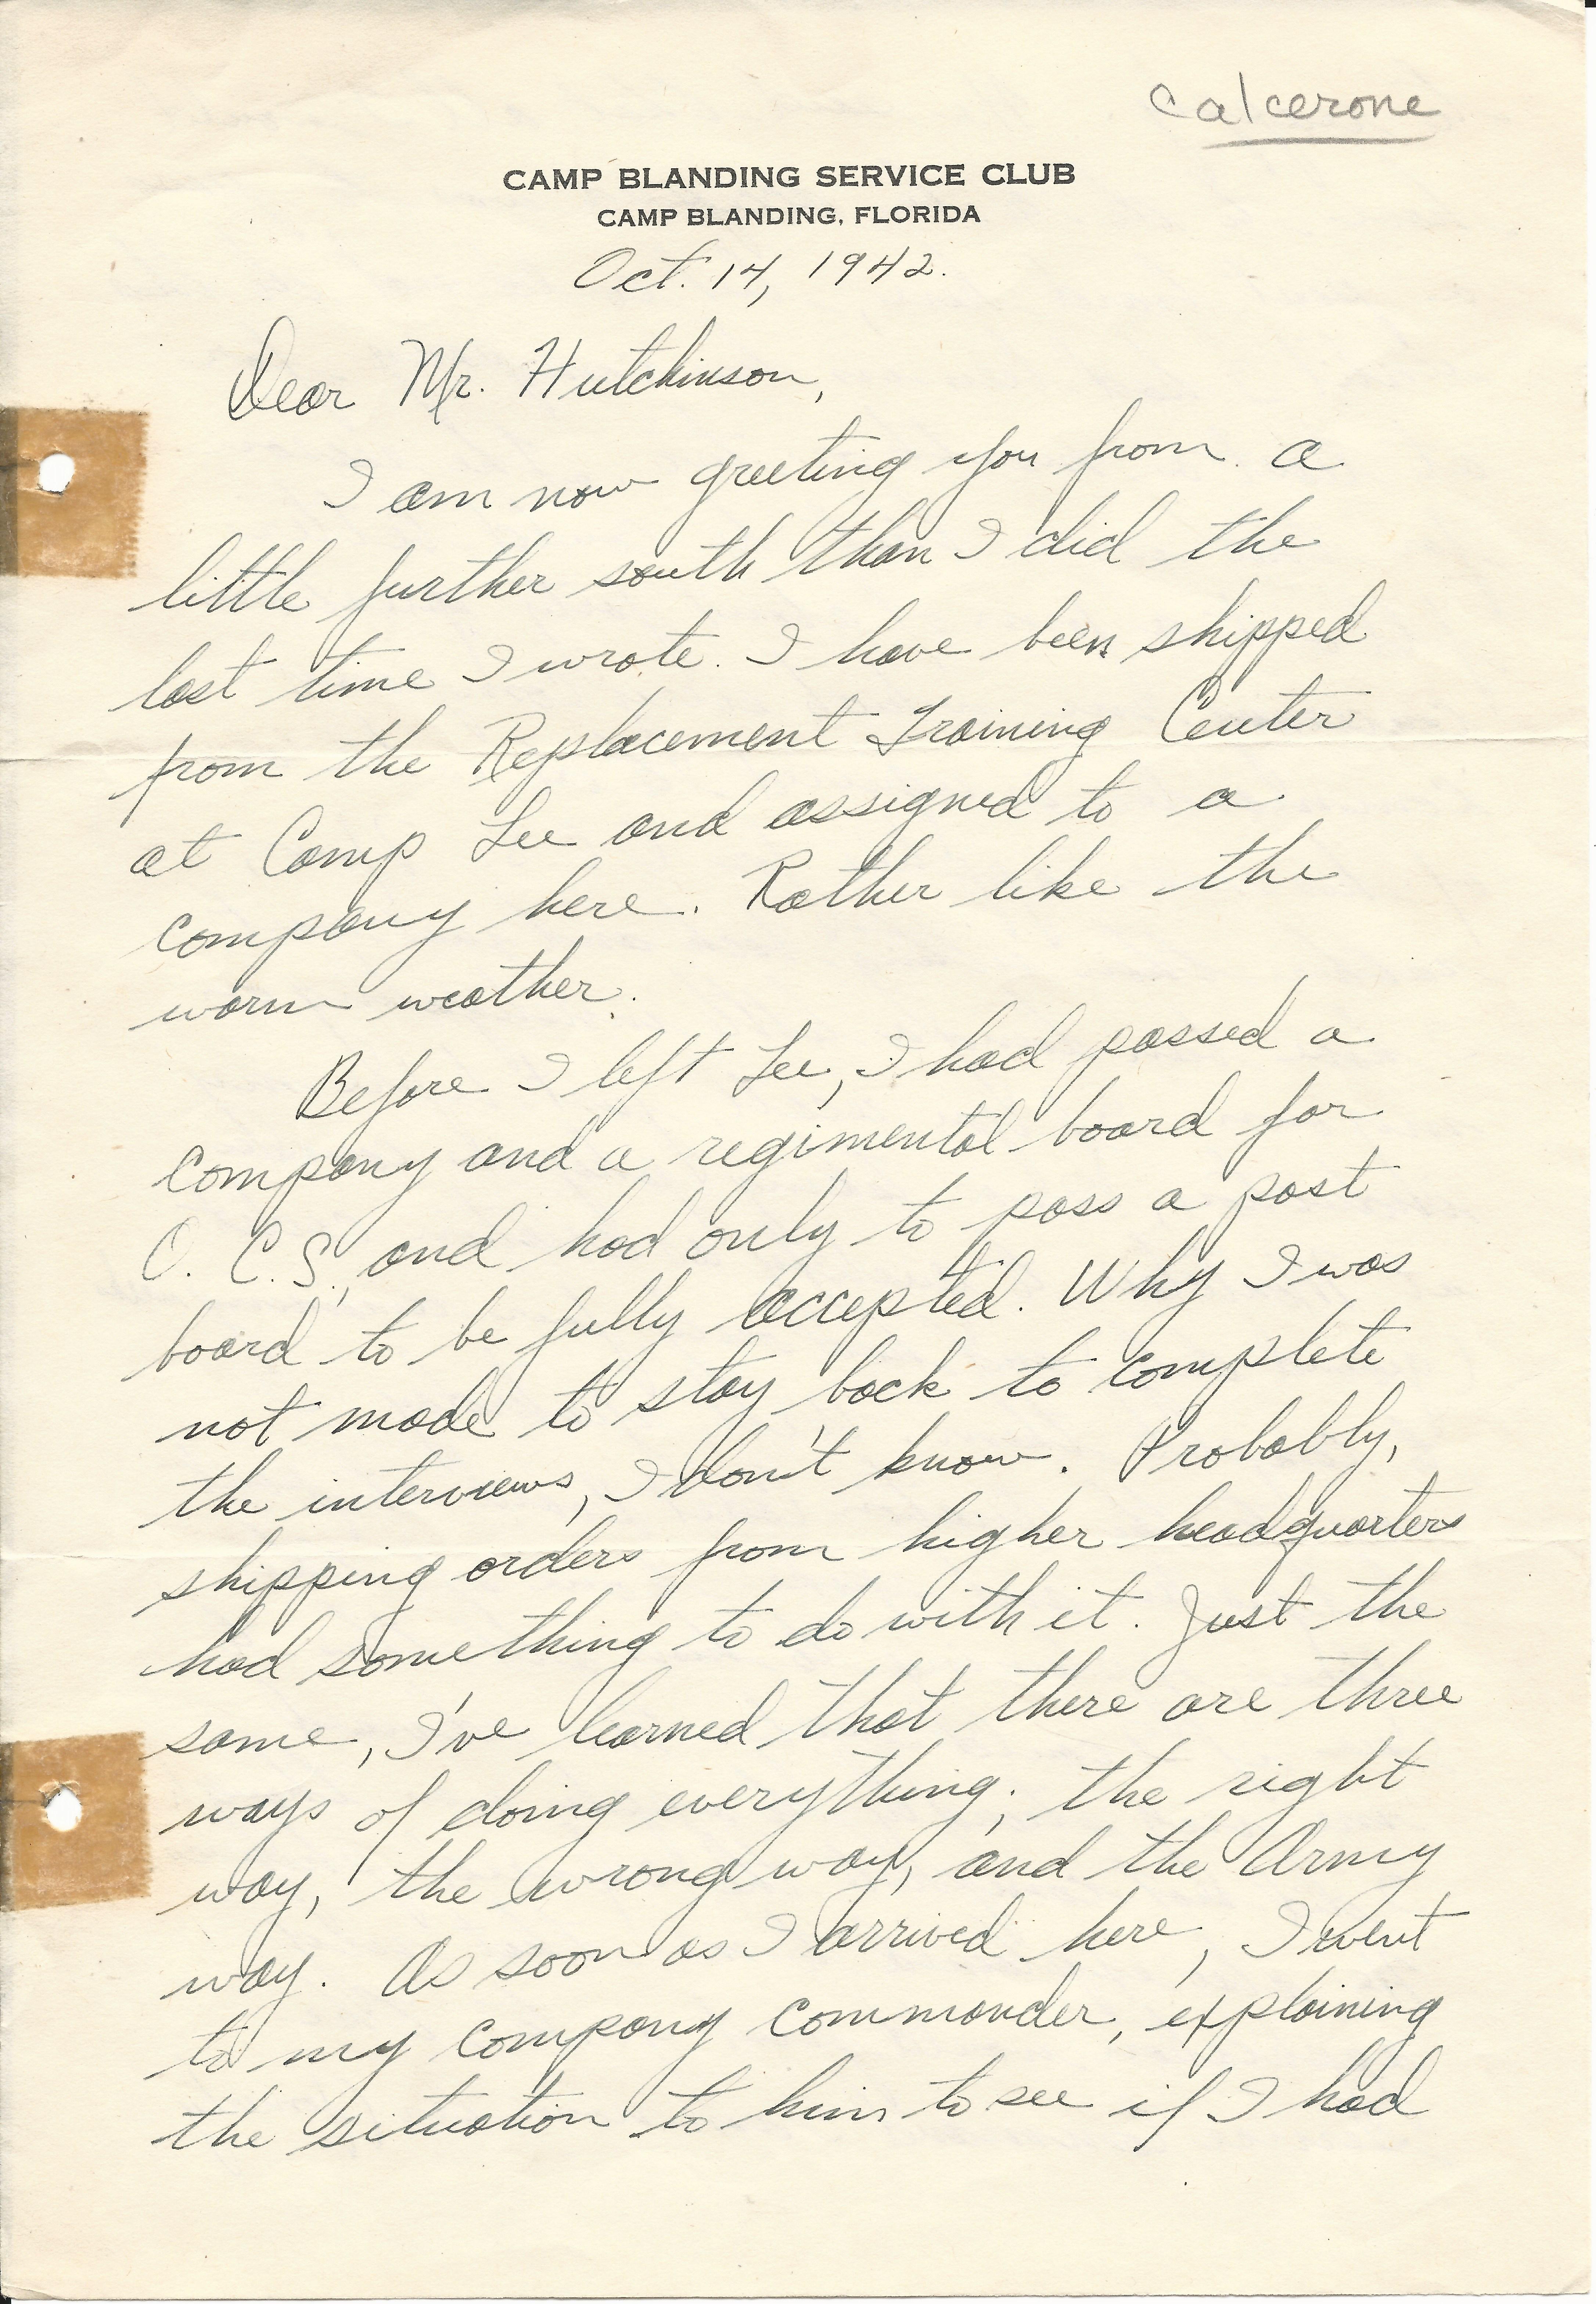 Calcerone
CAMP BLANDING SERVICE CLUB
CAMP BLANDING, FLORIDA
Oct. 14, 1942.
Dear Mr. Hutchinson,
I am now greeting you from a
little further south than I did the
last time I wrote. I have been shipped
from the Replacement Training Center
at Camp Lee and assigned to a
company here. Rather like the
warm weather.
Before I left Lee, I had passed a
company and a regimental board for
O. C. S., and had only to pass a post
board to be fully accepted. Why I was
not made to stay back to complete
the interviews, I don't know. Probably,
shipping orders from higher headquarters
had something to do with it. Just the
same, I've learned that there are three
ways of doing everything; the right
way, the wrong way, and the Army
way. As soon as I arrived here, I went
to my company commander, explaining
the situation to him to see if I had